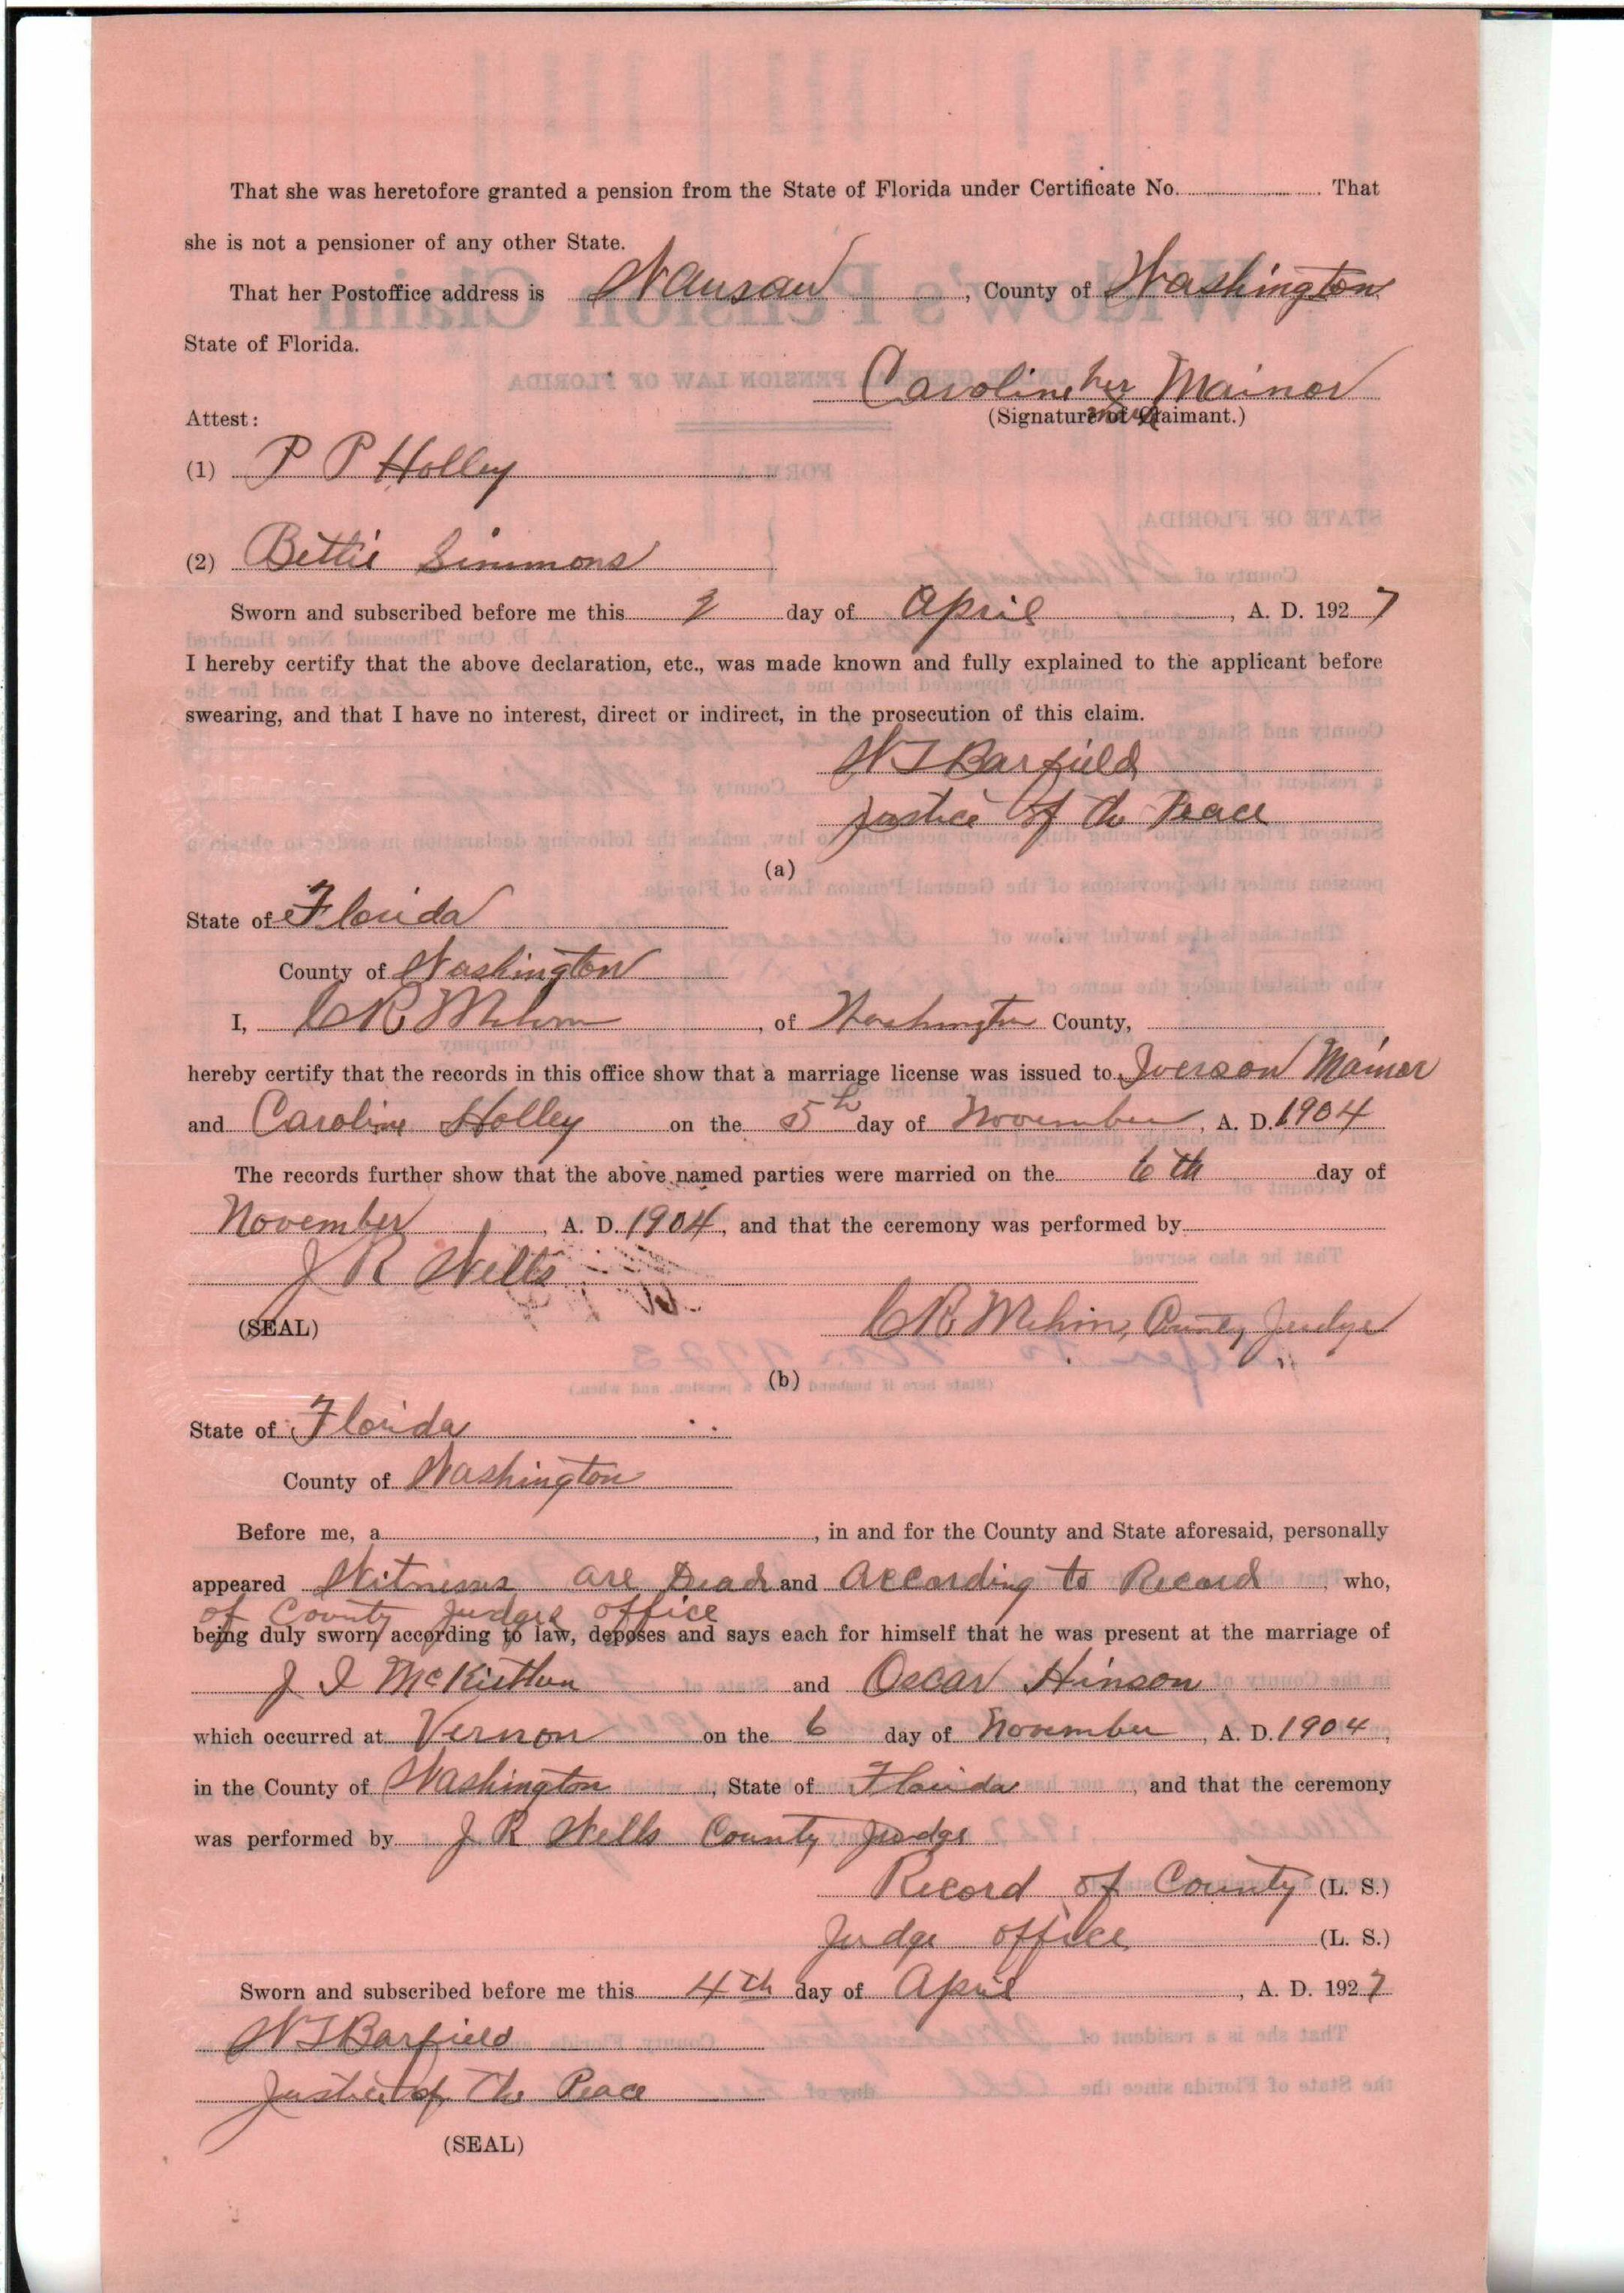 That she was heretofore granted a pension from the State of Florida under Certificate No. That
she is not a pensioner of any other State.
That her Postoffice address is Wausau, County of Washington
State of Florida.
Caroline her Mainor
mark
Attest: (Signature of Claimant.)
(1) P P Holley
(2) Bettie Simmons
Sworn and subscribed before me this 2 day of April, A. D. 1927
I hereby certify that the above declaration, etc., was made known and fully explained to the applicant before
swearing, and that I have no interest, direct or indirect, in the prosecution of this claim.
W J Barfield
Justice of the Peace
(a)
State of Florida
County of Washington
I, C R, of Washington County,
hereby certify that the records in this office show that a marriage license was issued to Iverson Mainor
and Caroline Holley on the 5th day of November, A. D. 1904
The records further show that the above named parties were married on the 6th day of
November, A. D. 1904, and that the ceremony was performed by
J R Wells
(SEAL) C R, County Judge
(b)
State of Florida
County of Washington
Before me, a, in and for the County and State aforesaid, personally
appeared Witnesses are Dead and According to Record, who,
of County Judges office
being duly sworn according to law, deposes and says each for himself that he was present at the marriage of
J I and Oscar Hinson
which occurred at Vernon on the 6 day of November, A. D. 1904,
in the County of Washington, State of Florida, and that the ceremony
was performed by J R Wells County Judge
Record of County (L. S.)
Judge office (L. S.)
Sworn and subscribed before me this 4th day of April, A. D. 1927
W J Barfield
Justice of The Peace
(SEAL)